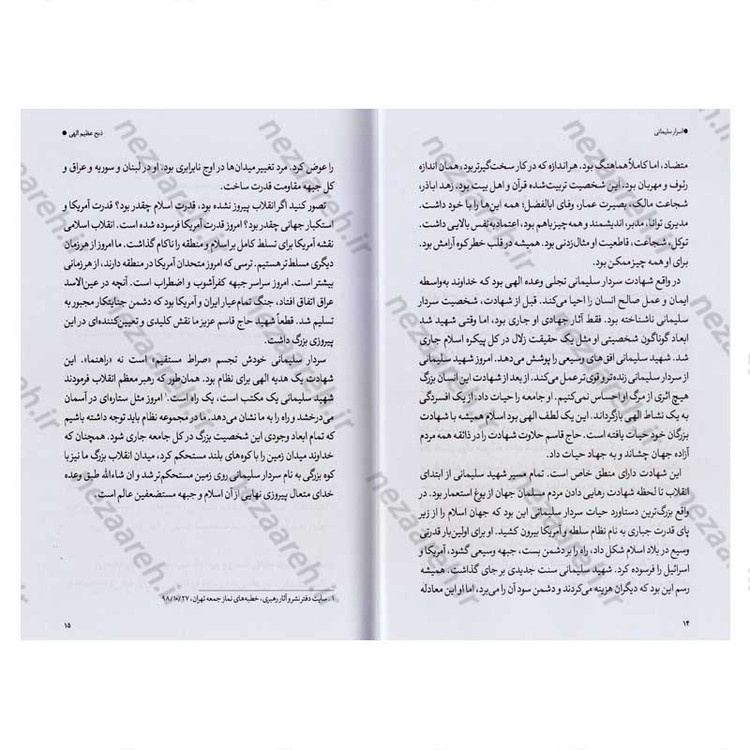 ● اسرار سلیمانی
متضاد، اما کاملاً هماهنگ بود. هر اندازه که در کار سخت‌گیرتر بود، همان اندازه
رئوف و مهربان بود. این شخصیت تربیت‌شده قرآن و اهل بیت بود. زهد اباذر،
شجاعت مالک، بصیرت عمار، وفای ابالفضل؛ همه این‌ها را با خود داشت.
مدیری توانا، مدبر، اندیشمند و همه چیز با هم بود. اعتماد به نفس بالایی داشت.
توکل، شجاعت، قاطعیت او مثال‌زدنی بود. همیشه در قلب خطر کوه آرامش بود.
برای او همه چیز ممکن بود.
در واقع شهادت سردار سلیمانی تجلی وعده الهی بود که خداوند به‌واسطه
ایمان و عمل صالح انسان را احیا می‌کند. قبل از شهادت، شخصیت سردار
سلیمانی ناشناخته بود. فقط آثار جهادی او جاری بود، اما وقتی شهید شد
ابعاد گوناگون شخصیتی او مثل یک حقیقت زلال در کل پیکره اسلام جاری
شد. شهید سلیمانی افق‌های وسیعی را پوشش می‌دهد. امروز شهید سلیمانی
از سردار سلیمانی زنده‌تر و قوی‌تر عمل می‌کند. از بعد از شهادت این انسان بزرگ
هیچ اثری از مرگ او احساس نمی‌کنیم. او جامعه را حیات داد، از یک افسردگی
به یک نشاط الهی بازگرداند. این یک لطف الهی بود اسلام همیشه با شهادت
بزرگان خود حیات یافته است. حاج قاسم حلاوت شهادت را در ذائقه همه مردم
آزاده جهان چشاند و به جهاد حیات داد.
این شهادت دارای منطق خاص است. تمام مسیر شهید سلیمانی از ابتدای
انقلاب تا لحظه شهادت رهایی دادن مردم مسلمان جهان از یوغ استعمار بود. در
واقع بزرگ‌ترین دستاورد حیات سردار سلیمانی این بود که جهان اسلام را از زیر
پای قدرت جباری به نام نظام سلطه و آمریکا بیرون کشید. او برای اولین‌بار قدرتی
وسیع در بلاد اسلام شکل داد، راه را بر دشمن بست، جبهه وسیعی گشود، آمریکا و
اسرائیل را فرسوده کرد. شهید سلیمانی سنت جدیدی بر جای گذاشت. همیشه
رسم این بود که دیگران هزینه می‌کردند و دشمن سود آن را می‌برد، اما او این معادله
۱۴
ذبح عظیم الهی ●
را عوض کرد. مرد تغییر میدان‌ها در اوج نابرابری بود. او در لبنان و سوریه و عراق و
کل جبهه مقاومت قدرت ساخت.
تصور کنید اگر انقلاب پیروز نشده بود، قدرت اسلام چقدر بود؟ قدرت آمریکا و
استکبار جهانی چقدر بود؟ امروز قدرت آمریکا فرسوده شده است. انقلاب اسلامی
نقشه آمریکا برای تسلط کامل بر اسلام و منطقه را ناکام گذاشت. ما امروز از هر زمان
دیگری مسلط‌تر هستیم. ترسی که امروز متحدان آمریکا در منطقه دارند، از هر زمانی
بیشتر است. امروز سراسر جبهه کفر آشوب و اضطراب است. آنچه در عین‌الاسد
عراق اتفاق افتاد، جنگ تمام‌عیار ایران و آمریکا بود که دشمن جنایتکار مجبور به
تسلیم شد. قطعاً شهید حاج قاسم عزیز ما نقش کلیدی و تعیین‌کننده‌ای در این
پیروزی بزرگ داشت.
سردار سلیمانی خودش تجسم «صراط مستقیم» است نه «راهنما». این
شهادت یک هدیه الهی برای نظام بود. همان‌طور که رهبر معظم انقلاب فرمودند
شهید سلیمانی یک مکتب است، یک راه است.¹ امروز مثل ستاره‌ای در آسمان
می‌درخشد و راه را به ما نشان می‌دهد. ما در مجموعه نظام باید توجه داشته باشیم
که تمام ابعاد وجودی این شخصیت بزرگ در کل جامعه جاری شود. همچنان که
خداوند میدان زمین را با کوه‌های بلند مستحکم کرد، میدان انقلاب بزرگ ما نیز با
کوه بزرگی به نام سردار سلیمانی روی زمین مستحکم‌تر شد و ان شاءالله طبق وعده
خدای متعال پیروزی نهایی از آن اسلام و جبهه مستضعفین عالم است.
۱. سایت دفتر نشر و آثار رهبری، خطبه‌های نماز جمعه تهران، ۹۸/۱۰/۲۷
۱۵
nezaareh.ir